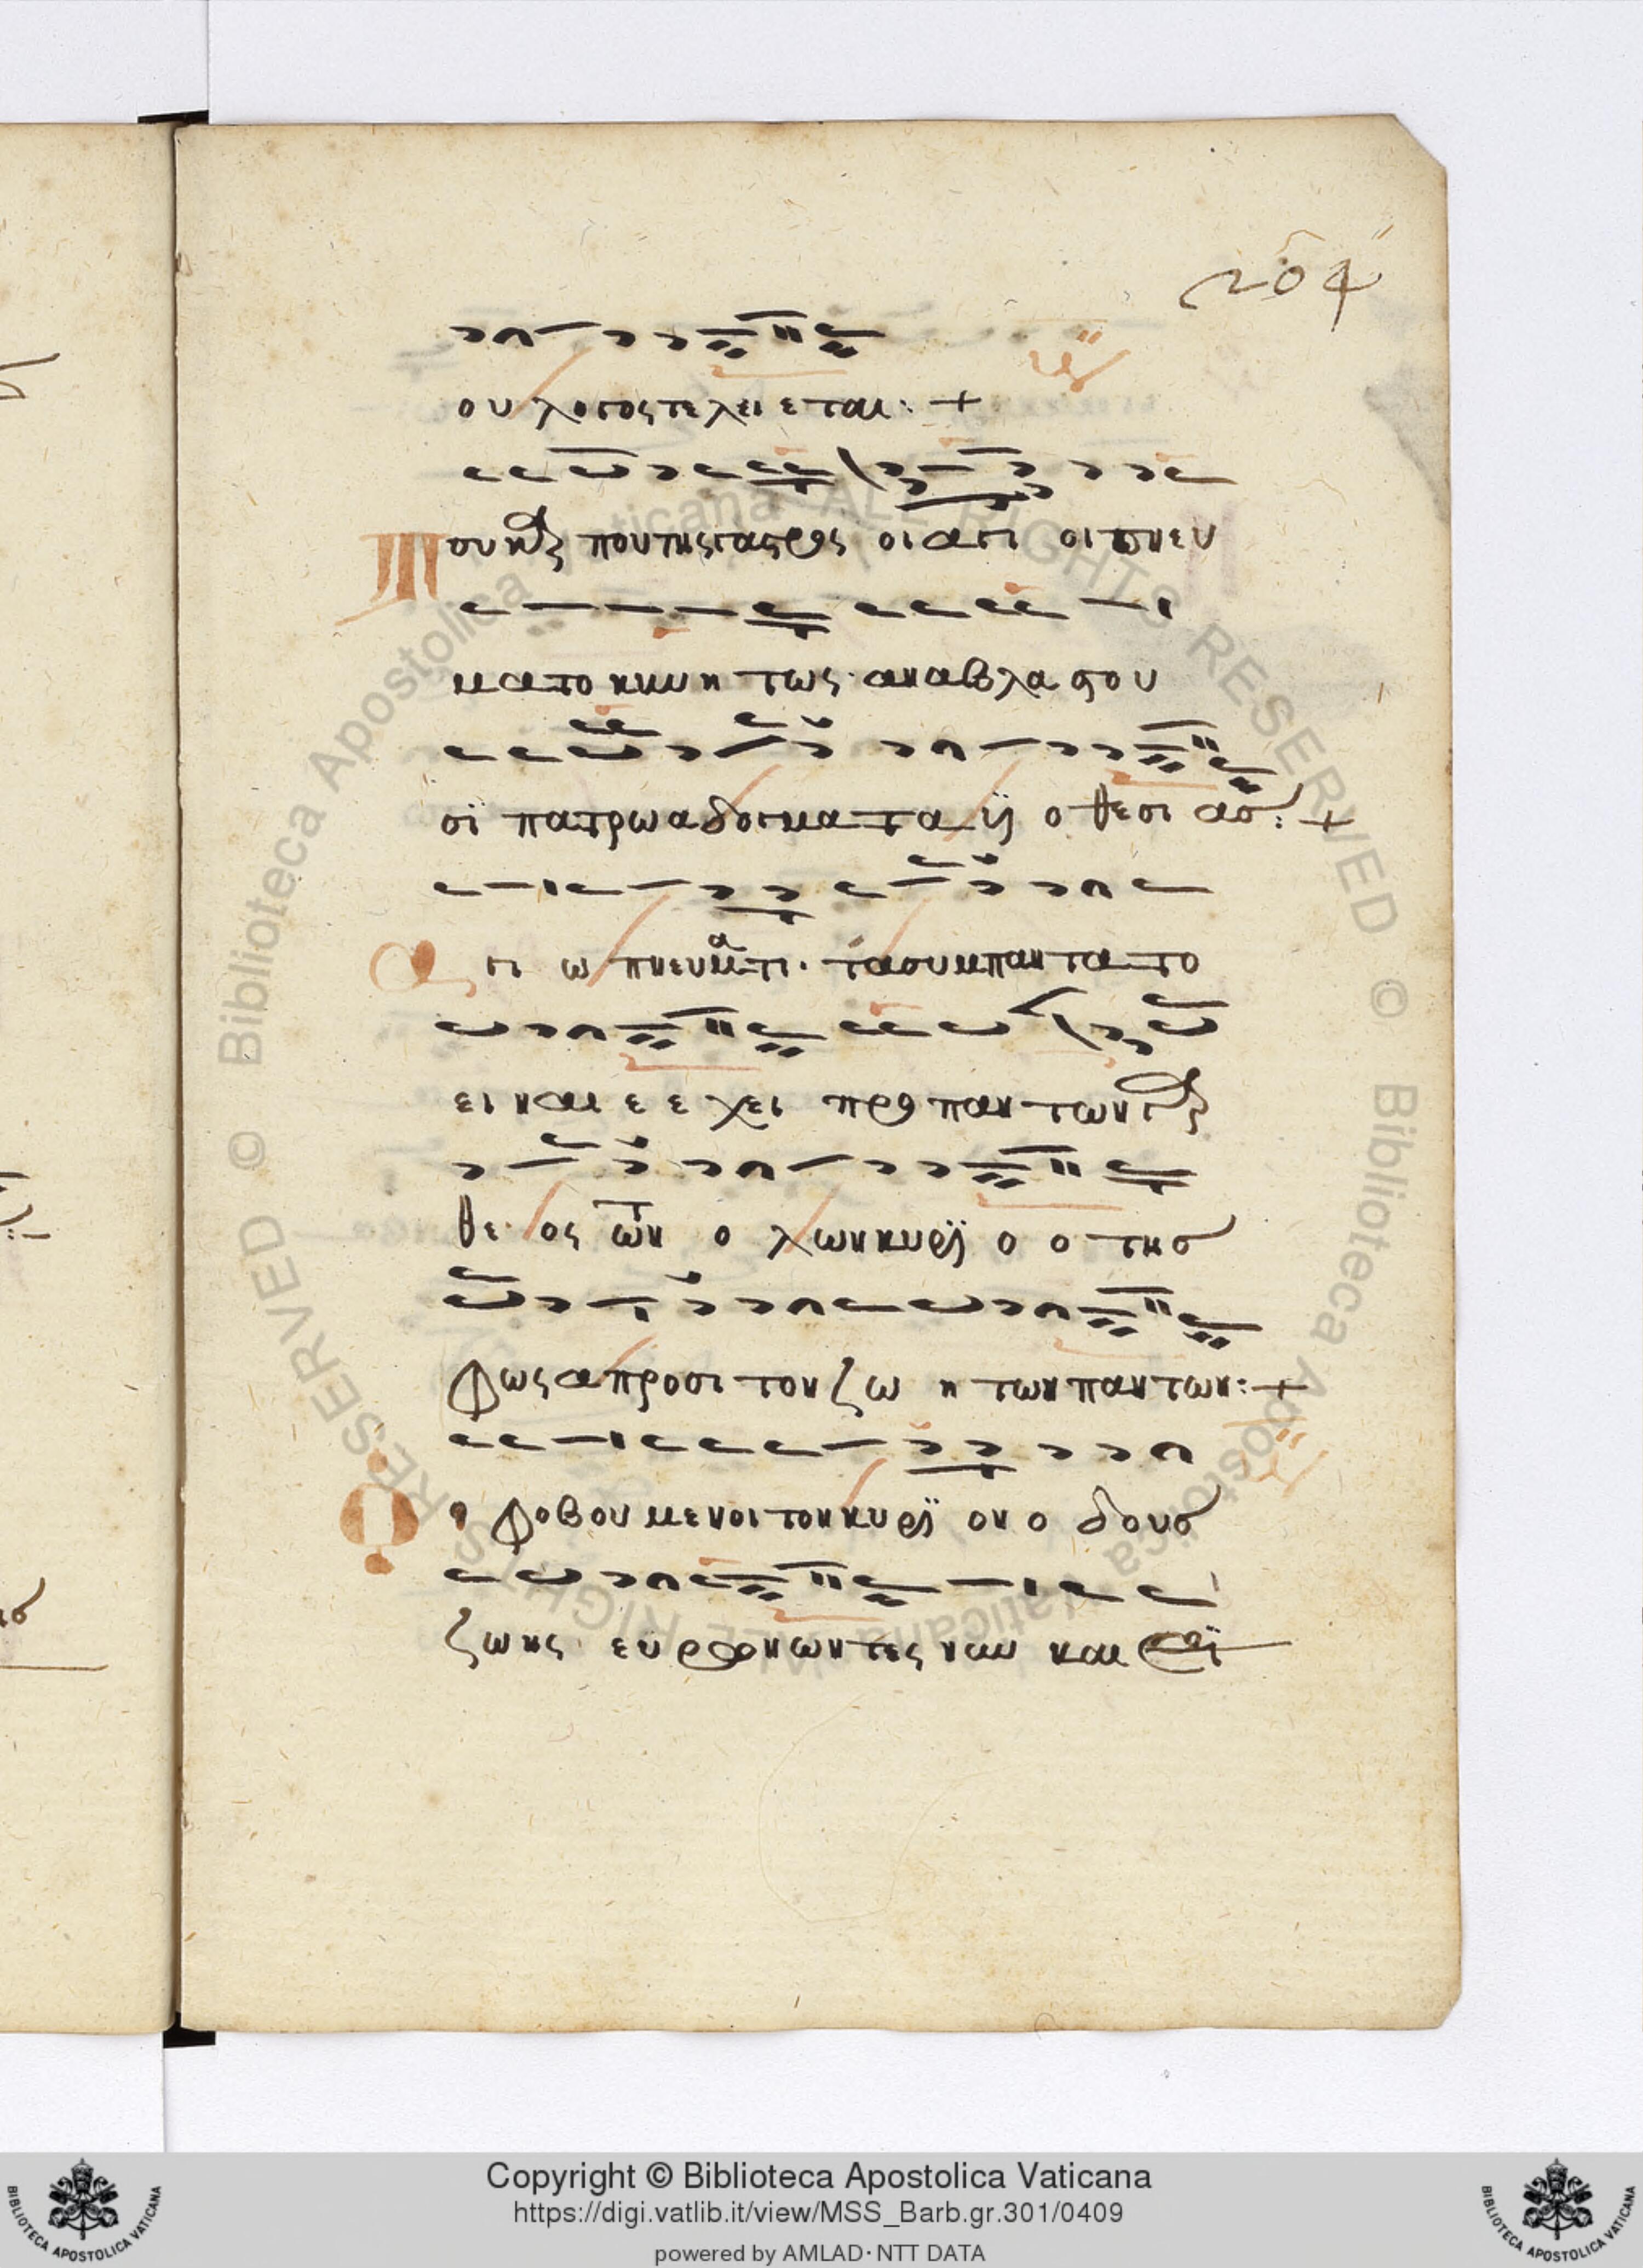 204
ου λογος τελει εται: +
Πουκδξ που της γαςρος οι αγι οι πνευ
ματο κινη τως· αναβλαςου
σϊ πατρωα δογματα ϋ ο θεσι ασ: +
Αγι ω πνευματι· τα συμπαντα το
ειναι ε ε χει προ παντων γδξ
θε ος των ο λων κυρϊ ο ο της
φως απροσι τον ζω η των παντων: +
Οι φοβου μενοι τον κυρϊ ον ο δους
ζωης ευ ρο νωντες νυν και
Copyright © Biblioteca Apostolica Vaticana
https://digi.vatlib.it/view/MSS_Barb.gr.301/0409
powered by AMLAD · NTT DATA
BIBLIOTECA APOSTOLICA VATICANA
BIBLIOTECA APOSTOLICA VATICANA
Biblioteca Apostolica Vaticana ALL RIGHTS RESERVED ©
Biblioteca Apostolica Vaticana ALL RIGHTS RESERVED ©